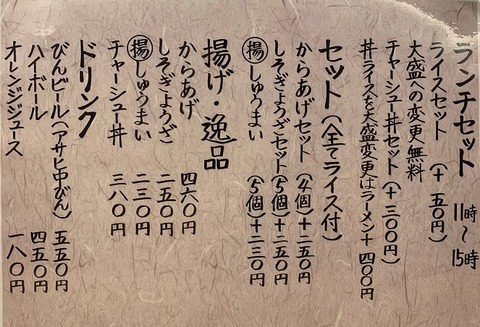 ランチセット 11時〜15時
ライスセット (+五〇円)
大盛への変更無料
チャーシュー丼セット (+三〇〇円)
丼ライスを大盛変更はラーメン+四〇〇円
セット(全てライス付)
からあげセット(4個)+二五〇円
しそぎょうざセット(5個)+二五〇円
揚しゅうまい(5個)+二三〇円
揚げ・逸品
からあげ 四六〇円
しそぎょうざ 二五〇円
揚しゅうまい 二三〇円
チャーシュー丼 三八〇円
ドリンク
びんビール(アサヒ中びん) 五五〇円
ハイボール 四五〇円
オレンジジュース 一八〇円